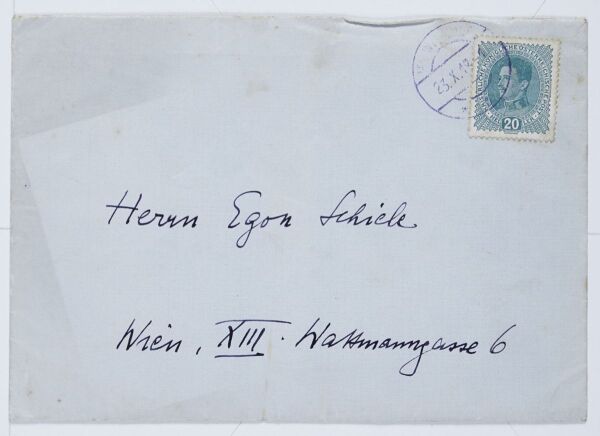 23.X.18
20
Herrn Egon Schiele
Wien, XIII. Wattmanngasse 6